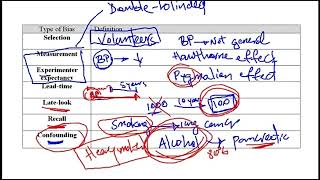 Double-blinded
Type of Bias Definition
Selection Volunteers BP → Not general
Measurement BP → ↓ Hawthorne effect
Experimenter expectancy Pygmalion effect
Lead-time 5 years
Late-look 1000 10 years 100
Recall Smoking lung cancer
Confounding Heavy smokers Alcohol → pancreatic